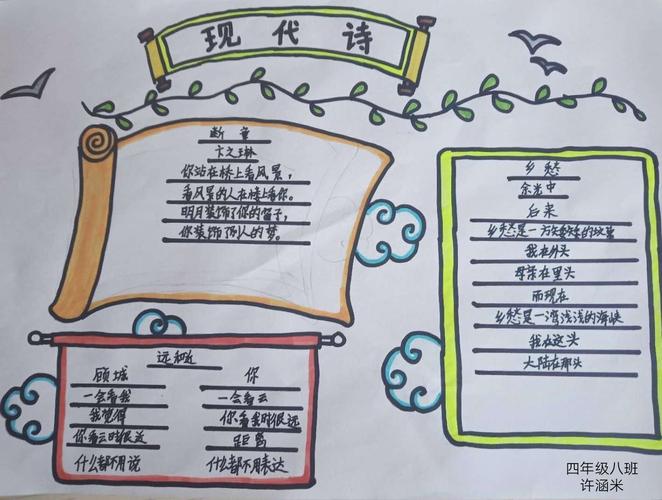 现代诗
断章
卞之琳
你站在桥上看风景，
看风景的人在楼上看你。
明月装饰了你的窗子，
你装饰了别人的梦。
远和近
顾城 你
一会看我 一会看云
我觉得 你看我时很远
你看云时很近 距离
什么都不用说 什么都不用表达
乡愁
余光中
后来
乡愁是一方矮矮的坟墓
我在外头
母亲在里头
而现在
乡愁是一湾浅浅的海峡
我在这头
大陆在那头
四年级八班
许涵米